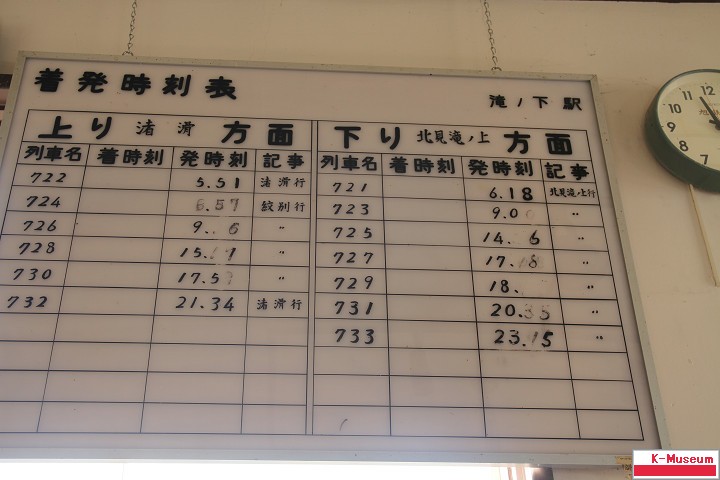 着発時刻表
滝ノ下駅
上り 渚滑 方面
列車名 着時刻 発時刻 記事
722 5.51 渚滑行
724 6.57 紋別行
726 9. 6 〃
728 15. 〃
730 17.5 〃
732 21.34 渚滑行
下り 北見滝ノ上 方面
列車名 着時刻 発時刻 記事
721 6.18 北見滝ノ上行
723 9.0 〃
725 14. 6 〃
727 17.18 〃
729 18. 〃
731 20.35 〃
733 23.15 〃
12
11
10
9
8
7
K-Museum